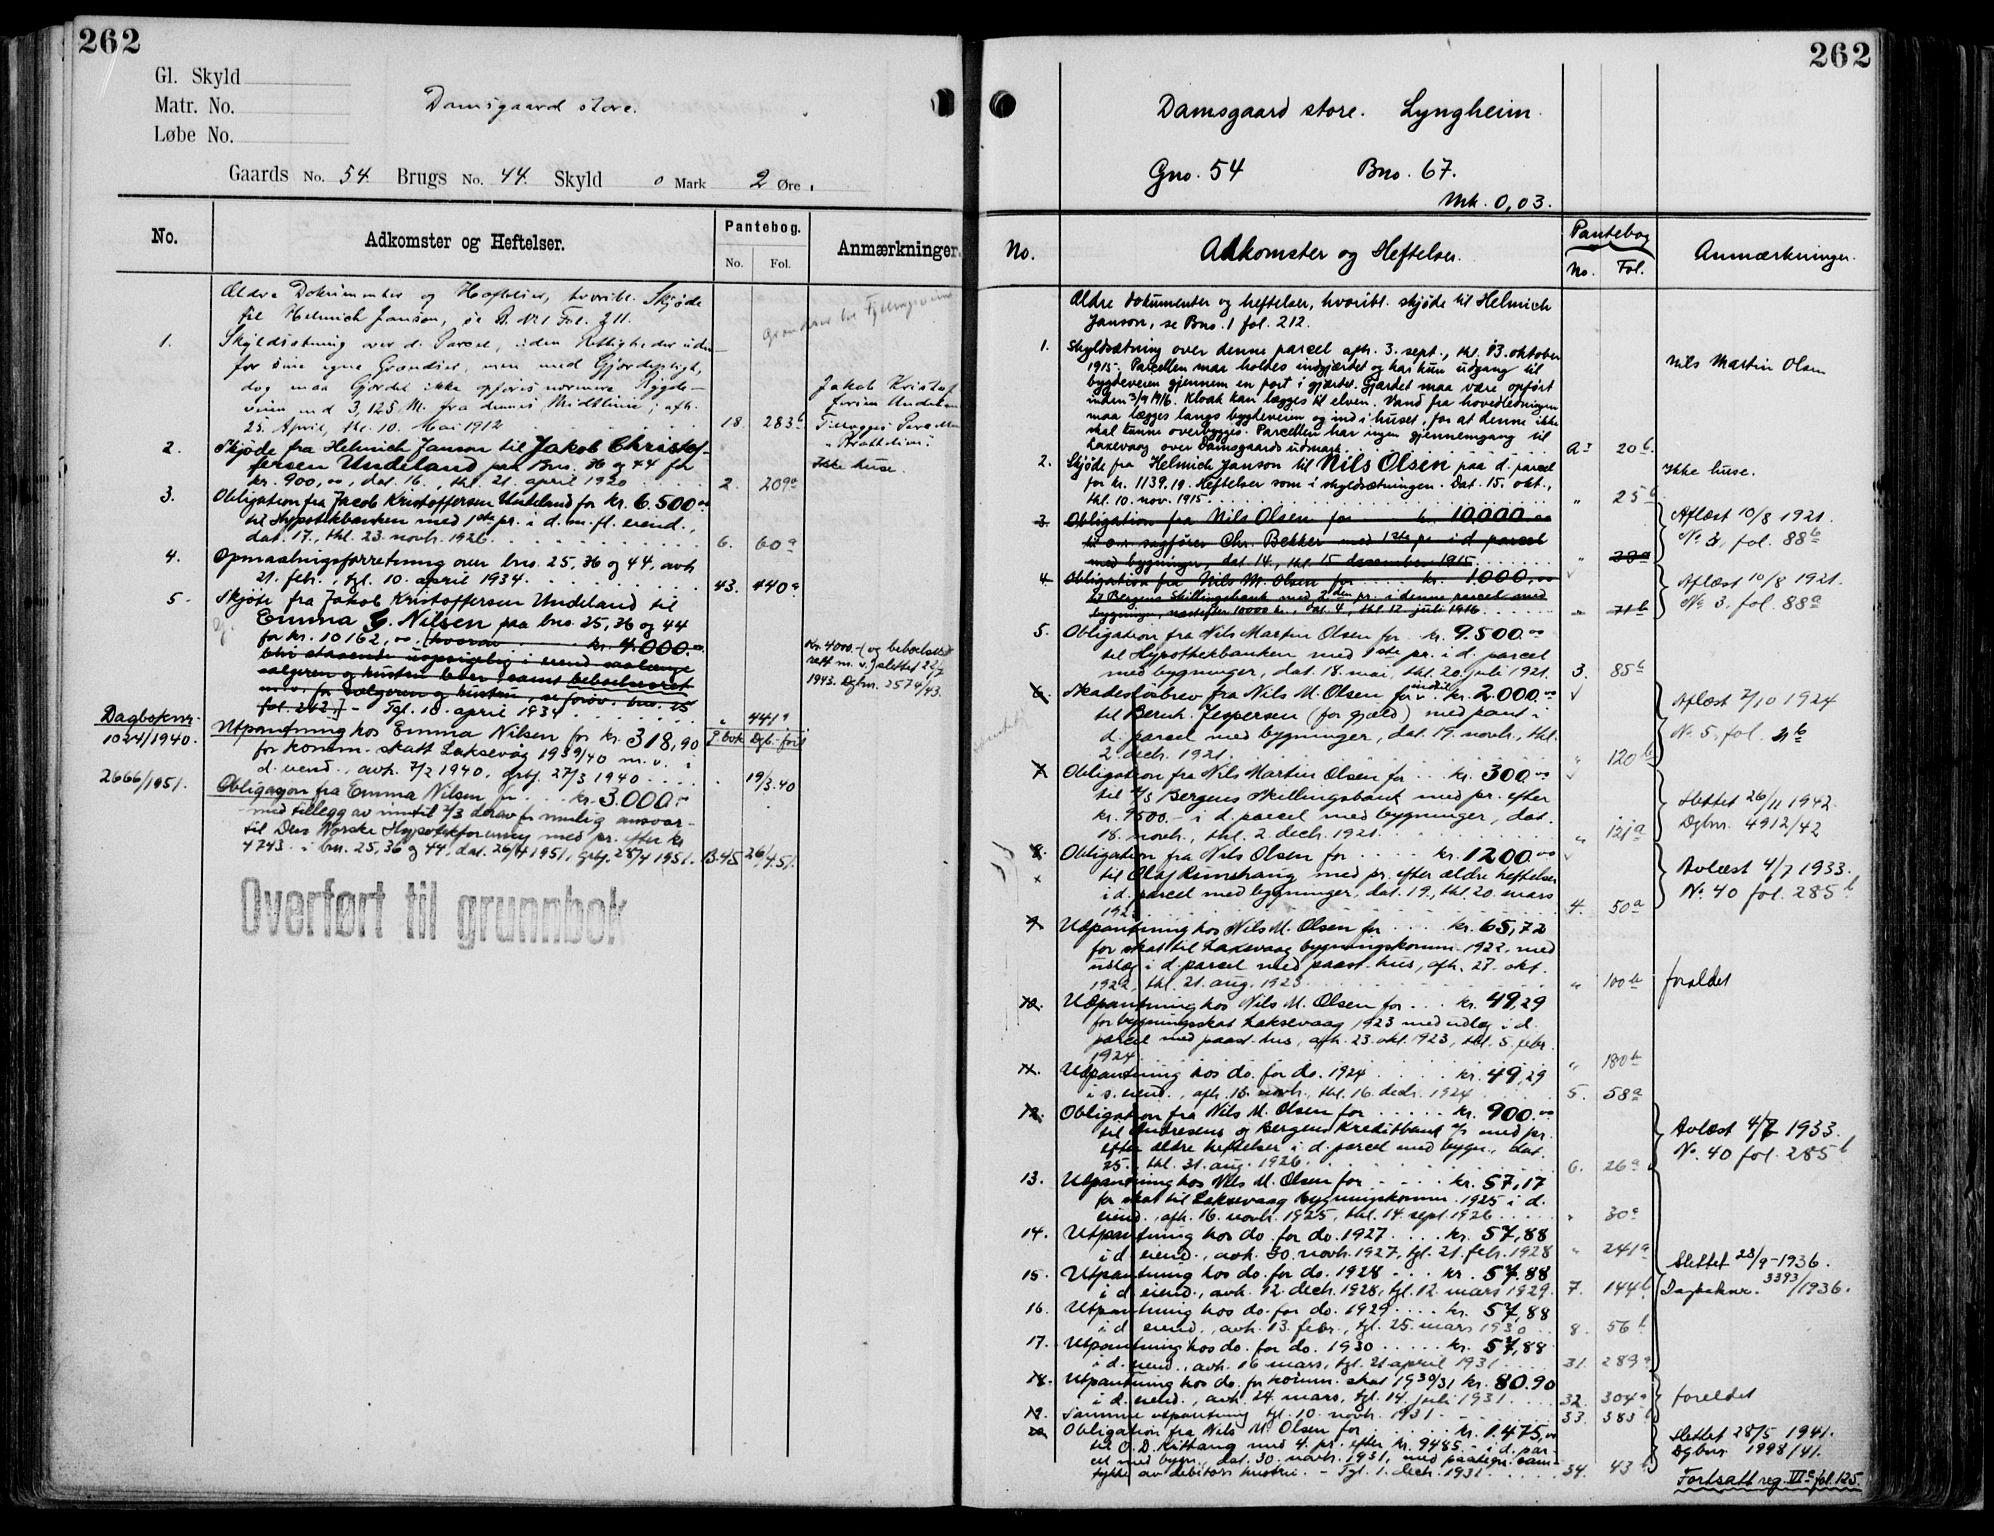 262
Gl. Skyld
Matr. No.
Løbe No.
Damsgaard store.
Gaards No. 54. Brugs No. 44. Skyld 0 Mark 2 Øre
No.
Adkomster og Heftelser.
Pantebog.
No. Fol.
Anmærkninger.
Ældre Dokumenter og Heftelser, hvoribl. Skjøde
til Helmich Janson, se B. Nr 1 Fol. 211.
1. Skyldsætning over d. Parcel, uden Rettigheder uden
for sine egne Grændser, men med Gjerdepligt,
dog maa Gjerdet ikke opføres nærmere Bygde-
veien end 3,125 M. fra dennes Midtlinie; afh.
25. April, thl. 10. Mai 1912 18. 283b
Jakob Kristof
fersen Undeland
2. Skjøde fra Helmich Janson til Jakob Christof-
fersen Undeland paa Bno. 36 og 44 for
kr. 900,00, dat. 16., thl. 21. april 1920 2. 209a
Ikke huse.
3. Obligation fra Jacob Kristoffersen Undeland for kr. 6.500.00
til Hypotekbanken med 1ste pr. i d. m. fl. eiend.,
dat. 17., thl. 23. novbr. 1926. 6. 60a
4. Opmaalingsforretning over bno. 25, 36 og 44, avh.
21. feb., tgl. 10. april 1934. 43. 440a
5. Skjøte fra Jakob Kristoffersen Undeland til
Emma G. Nilsen paa bno. 25, 36 og 44
for kr. 10162,00. (hvorav kr. 4.000.00
blir staaende uopsigelig i eiend. saalænge
sælgeren og hustru lever samt beboelsesret
m.v. for sælgeren og hustru, se forøv. bno. 25
fol. 242.) - Tgl. 10. april 1934 " 441a
Kr. 4000.- (og beboelses-
rett m. v.) slettet 22/7
1943. Dgbnr. 2574/43.
Dagboknr. 1024/1940.
Utpantning hos Emma Nilsen for kr. 318,90 P.bok Dgb.-ført
for komm. skatt Laksevåg 1939/40 m. v. i
d. eiend., avh. 7/2 1940, grbf. 27/3 1940 19/3.40
2666/1951.
Obligasjon fra Emma Nilsen for kr. 3.000.00
med tillegg av inntil 2/3 derav for mulig ansvar
til Den Norske Hypotekforening med pr. efter kr.
4743.- i bnr. 25, 36 og 44, dat. 26/4 1951, grbf. 28/4 1951. B.45 26/4.51.
Overført til grunnbok
262
Damsgaard store. Lyngheim.
Gno. 54 Bno. 67.
Mrk. 0,03.
No.
Adkomster og Heftelser.
Pantebog
No. Fol.
Anmærkninger.
Ældre dokumenter og heftelser, hvoribl. skjøde til Helmich
Janson, se Bno. 1 fol. 212.
1. Skyldsætning over denne parcel afh. 3. sept., thl. 13. oktober
1915. Parcellen maa holdes indgjærdet og har kun udgang til
bygdeveien gjennem en port i gjærdet. Gjærdet maa være opført
inden 3/9 1916. Kloak kan lægges til elven. Vand fra hovedledningen
maa lægges langs bygdeveien og ind i huset, for at denne ikke
skal kunne overbygges. Parcellen har ingen gjennemgang til
Laxevaag over Damsgaards udmark. A3 20b.
Nils Martin Olsen
2. Skjøde fra Helmich Janson til Nils Olsen paa d. parcel
for kr. 1139.19. Heftelser som i skyldsætningen. Dat. 15. okt.,
thl. 10. nov. 1915. " 25b
Ikke huse.
3. Obligation fra Nils Olsen for kr. 10.000.00
til o.r. sagfører Chr. Bekker med 1ste pr. i d. parcel
med bygninger, dat. 14., thl. 15. desember 1915.
Aflæst 10/8 1921.
No. 3, fol. 88b
4. Obligation fra Nils M. Olsen for kr. 1000,00
til Bergens Skillingsbank med 2den pr. i denne parcel med
bygninger, næstefter 10000 kr., dat. 4., thl. 12. juli 1916. " 71b
Aflæst 10/8 1921.
No. 3, fol. 88a
5. Obligation fra Nils Martin Olsen for kr. 9.500.00
til Hypothekbanken med 1ste pr. i d. parcel
med bygninger, dat. 18. mai, thl. 20. juli 1921. 3. 85b
6. Skadesløsbrev fra Nils M. Olsen for indtil kr. 2.000.00
til Bernh. Jespersen (for gjæld) med pant i
d. parcel med bygninger, dat. 19. novbr., thl.
2. decb. 1921. " 120b
Aflæst 7/10 1924
No. 5, fol. 21b
7. Obligation fra Nils Martin Olsen for kr. 300.00
til A/S Bergens Skillingsbank med pr. efter
kr. 9500.- i d. parcel med bygninger, dat.
18. novb., thl. 2. decb. 1921. " 121a
Slettet 26/11 1942.
Dgbnr. 4912/42
8. Obligation fra Nils Olsen for kr. 1200.00
til Olaf med pr. efter ældre heftelser
i d. parcel med bygninger, dat. 19., thl. 20. mars
4. 50a
Avlæst 4/7 1933.
No. 40 fol. 285b
9. Udpantning hos Nils M. Olsen for kr. 65,72
for skat til Laxevaag bygningskomm. 1922, med
udlæg i d. parcel med paast. hus, afh. 27. okt.
1922, thl. 21. aug. 1923. " 100b
foraldet
10. Udpantning hos Nils M. Olsen for kr. 49,29
for bygningsskat Laksevaag 1923 med udlæg i d.
parcel med paast. hus, afh. 23. okt. 1923, thl. 5. febr.
1924. " 180b
11. Udpantning hos do. for do. 1924 kr. 49,29
i s. eiend., afh. 18. novbr., thl. 16. decbr. 1924 5. 58a
12. Obligation fra Nils M. Olsen for kr. 900.00
til Andresens og Bergens Kreditbank A/S med pr.
efter ældre heftelser i d. parcel med bygn., dat.
25., thl. 31. aug. 1926. 6. 26a
Avlæst 4/7 1933.
No. 40 fol. 285b
13. Utpantning hos Nils M. Olsen for kr. 57,17
for skat til Laksevaag bygningskomm. 1925 i d.
eiend., afh. 16. novbr. 1925, thl. 14. sept. 1926 " 30a
14. Utpantning hos do. for do. 1927 kr. 57,88
i d. eiend., avh. 30. novb. 1927, tgl. 21. feb. 1928 " 241a
15. Utpantning hos do. for do. 1928 kr. 57.88
i d. eiend., avh. 12. decb. 1928, tgl. 12. mars 1929. 7. 144b
Slettet 23/9-1936.
Dagboknr. 3393/1936.
16. Utpantning hos do. for do. 1929 kr. 57,88
i d. eiend., avh. 13. febr., tgl. 25. mars 1930 8. 56b
17. Utpantning hos do. for do. 1930 kr. 57,88
i d. eiend., avh. 16. mars, tgl. 21 april 1931 31. 289a
18. Utpantning hos do. for komm. skat 1930/31 kr. 80.90
i d. eiend., avh. 24. mars, tgl. 14. juli 1931. 32. 304a
foreldet
19. Samme utpantning tgl. 10. novb. 1931. 33. 383b
20. Obligation fra Nils M. Olsen for kr. 1.475,00
til O. D. Kittang med 4. pr. efter kr. 9485.- i d. par-
cel med bygn., dat. 30. novb. 1931, med paategn. sam-
tykke av debitors hustru. - Tgl. 1. decb. 1931. 34. 43b
Slettet 28/5 1941.
Dgbnr. 1998/41.
Fortsatt reg. VIc fol. 125.